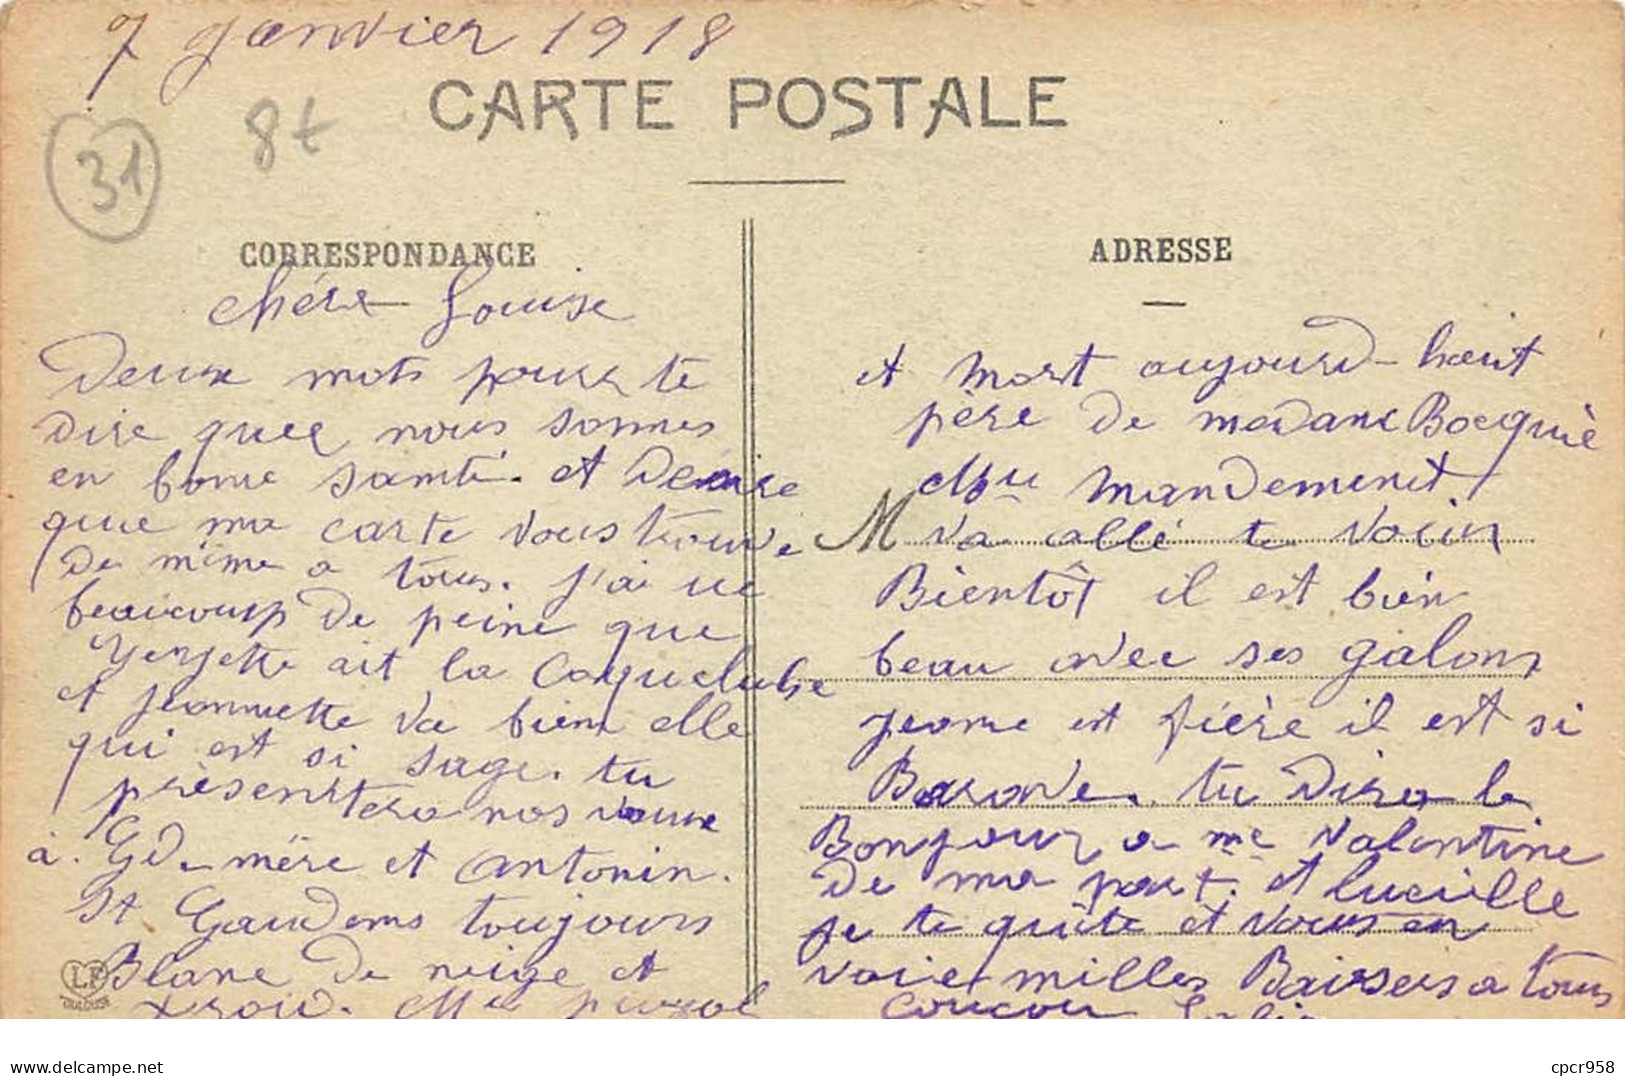 7 janvier 1918
CARTE POSTALE
31
8t
CORRESPONDANCE
chére Louise
Deux mots pour te
dire quel nous sommes
en bonne samté. et Désire
que ma carte vous trouve
de même a tous. J'ai ue
beaucoup de peine que
ait la Coqueluche
et jeannette va bien elle
qui est si sage. tu
présentera nos
à. Gd-mére et Antonin.
St Gaudens toujours
Blanc de neige et
froid. Mr
LF
TOULOUSE
ADRESSE
et mort aujourd-hœit
père de madame Bocquié
Mandement
M va allé te voir
Bientôt il est bien
beau avec ses galons
jeanne est fiére il est si
Barave. tu Dira le
Bonjour a me Valentine
De ma part. et Lucille
je te quite et vous en
voie milles Baisers a tous
coucou
delcampe.net
cpcr958